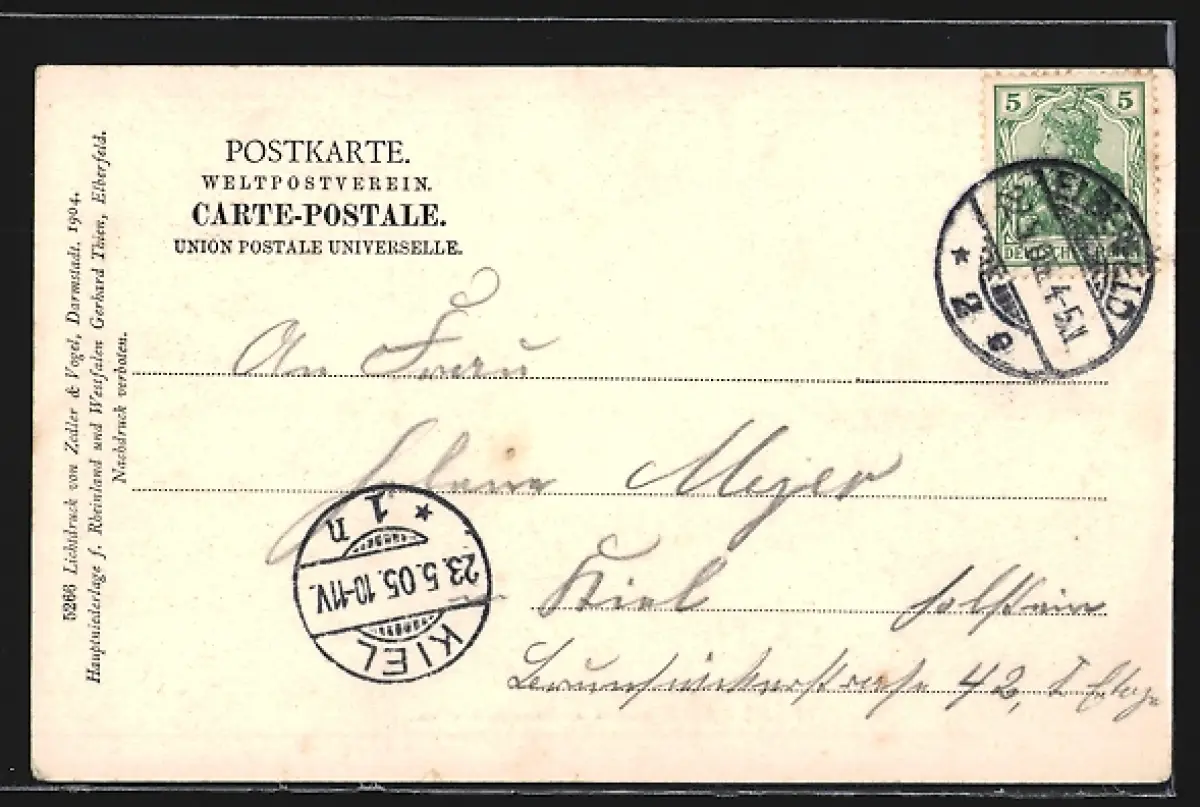 POSTKARTE.
WELTPOSTVEREIN.
CARTE-POSTALE.
UNION POSTALE UNIVERSELLE.
5266 Lichtdruck von Zedler & Vogel, Darmstadt. 1904.
Hauptniederlage f. Rheinland und Westfalen Gerhard Thien, Elberfeld.
Nachdruck verboten.
5 5
DEUTSCHES
ELBERFELD
4-5N.
* 2 e
An Frau
Meyer
Kiel Holstein
Brunswickerstraße 42, I Etage
* 1 n
23.5.05.10-11V.
KIEL